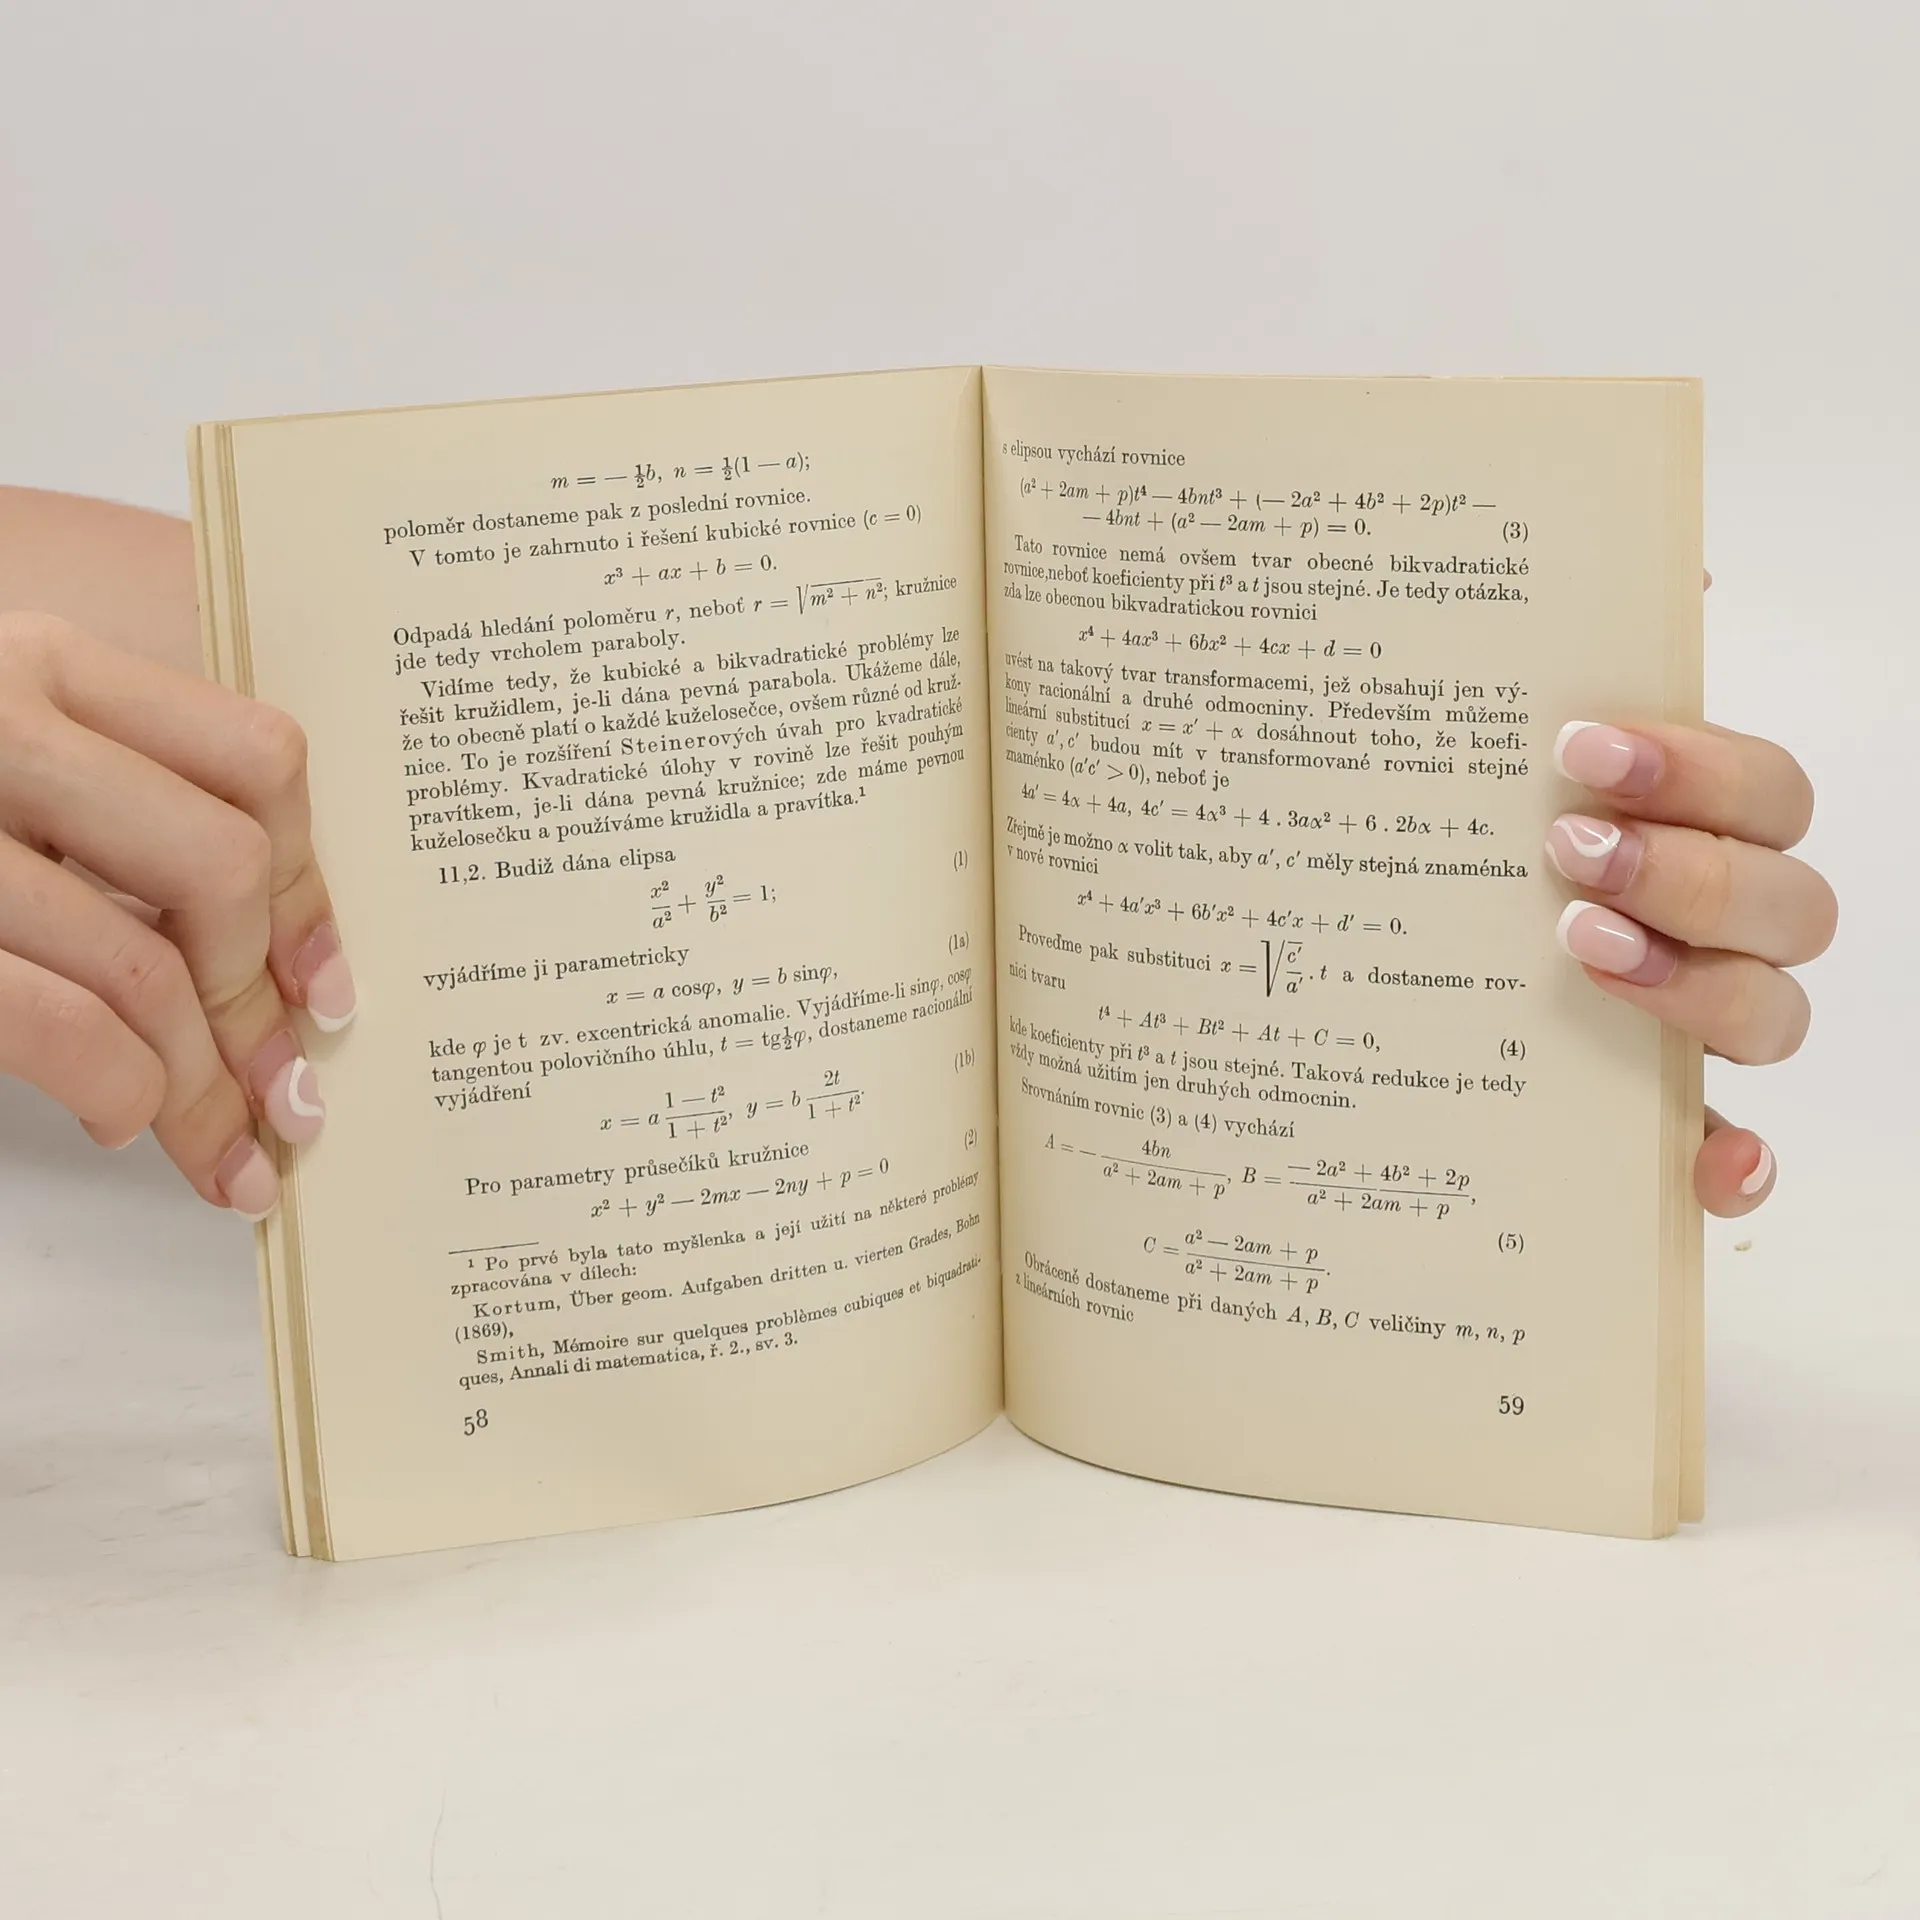 m = — ½b, n = ½(1 — a);
poloměr dostaneme pak z poslední rovnice.
V tomto je zahrnuto i řešení kubické rovnice (c = 0)
x³ + ax + b = 0.
Odpadá hledání poloměru r, neboť r = √m² + n²; kružnice
jde tedy vrcholem paraboly.
Vidíme tedy, že kubické a bikvadratické problémy lze
řešit kružidlem, je-li dána pevná parabola. Ukážeme dále,
že to obecně platí o každé kuželosečce, ovšem různé od kruž-
nice. To je rozšíření Steinerových úvah pro kvadratické
problémy. Kvadratické úlohy v rovině lze řešit pouhým
pravítkem, je-li dána pevná kružnice; zde máme pevnou
kuželosečku a používáme kružidla a pravítka.¹
11,2. Budiž dána elipsa
x²/a² + y²/b² = 1; (1)
vyjádříme ji parametricky
x = a cosφ, y = b sinφ, (1a)
kde φ je t zv. excentrická anomalie. Vyjádříme-li sinφ, cosφ
tangentou polovičního úhlu, t = tg½φ, dostaneme racionální
vyjádření
x = a (1 — t²)/(1 + t²), y = b 2t/(1 + t²). (1b)
Pro parametry průsečíků kružnice
x² + y² — 2mx — 2ny + p = 0 (2)
¹ Po prvé byla tato myšlenka a její užití na některé problémy
zpracována v dílech:
Kortum, Über geom. Aufgaben dritten u. vierten Grades, Bohn
(1869),
Smith, Mémoire sur quelques problèmes cubiques et biquadrati-
ques, Annali di matematica, ř. 2., sv. 3.
58
s elipsou vychází rovnice
(a² + 2am + p)t⁴ — 4bnt³ + (— 2a² + 4b² + 2p)t² —
— 4bnt + (a² — 2am + p) = 0. (3)
Tato rovnice nemá ovšem tvar obecné bikvadratické
rovnice,neboť koeficienty při t³ a t jsou stejné. Je tedy otázka,
zda lze obecnou bikvadratickou rovnici
x⁴ + 4ax³ + 6bx² + 4cx + d = 0
uvést na takový tvar transformacemi, jež obsahují jen vý-
kony racionální a druhé odmocniny. Především můžeme
lineární substitucí x = x′ + α dosáhnout toho, že koefi-
cienty a′, c′ budou mít v transformované rovnici stejné
znaménko (a′c′ > 0), neboť je
4a′ = 4α + 4a, 4c′ = 4α³ + 4 . 3aα² + 6 . 2bα + 4c.
Zřejmě je možno α volit tak, aby a′, c′ měly stejná znaménka
v nové rovnici
x⁴ + 4a′x³ + 6b′x² + 4c′x + d′ = 0.
Proveďme pak substituci x = √c′/a′ . t a dostaneme rov-
nici tvaru
t⁴ + At³ + Bt² + At + C = 0, (4)
kde koeficienty při t³ a t jsou stejné. Taková redukce je tedy
vždy možná užitím jen druhých odmocnin.
Srovnáním rovnic (3) a (4) vychází
A = — 4bn/(a² + 2am + p), B = (— 2a² + 4b² + 2p)/(a² + 2am + p),
C = (a² — 2am + p)/(a² + 2am + p). (5)
Obráceně dostaneme při daných A, B, C veličiny m, n, p
z lineárních rovnic
59